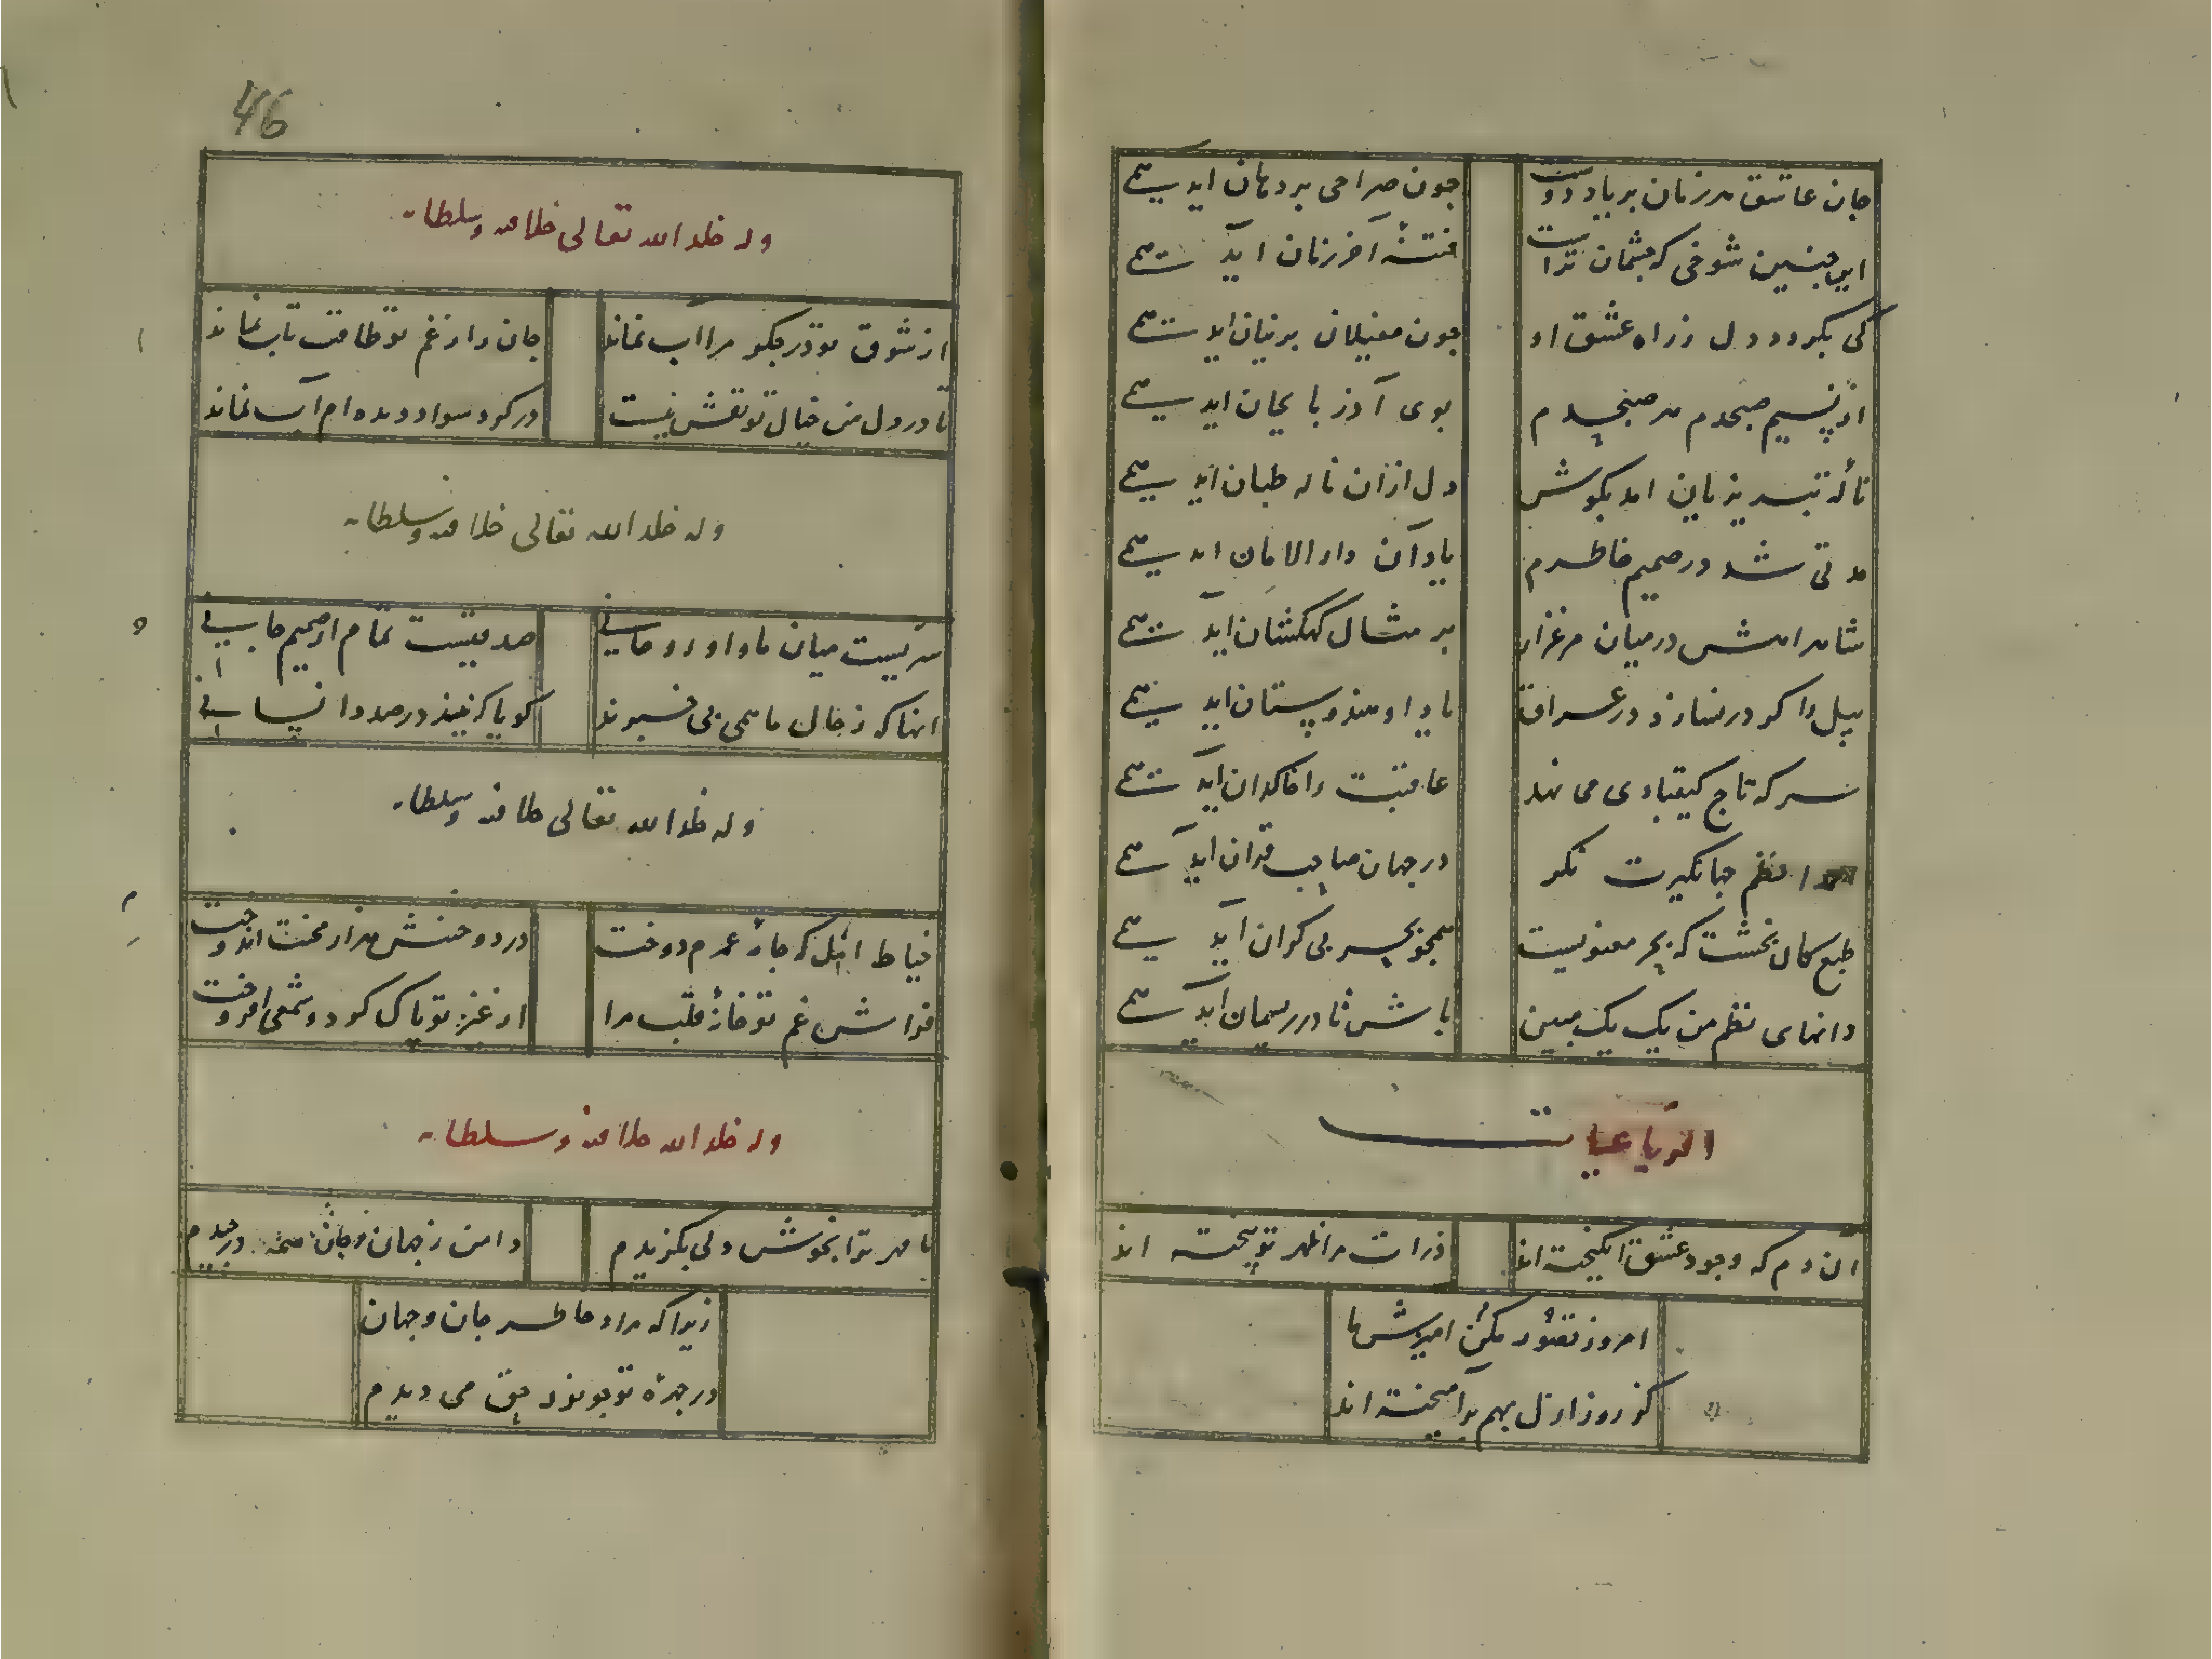 جان عاشق هر زمان بر یاد دوست
چون صراحی بر دهان اید همی
این چنین شوخی که چشمان تراست
فتنهٔ آخر زمان آید همی
کی بگردد دل ز راه عشق او
چون مغیلان پرنیان اید همی
از نسیم صبحدم هر صبحدم
بوی آذربایجان اید همی
نالهٔ تبریزیان امد بگوش
دل ازان ناله طپان اید همی
مدتی شد در صمیم خاطرم
یاد آن دار الامان اید همی
شاهراهش در میان مرغزار
بر مثال کهکشان اید همی
پیل را گر در نیارند در عراق
یاد او هندوستان اید همی
سر که تاج کیقبادی می نهد
عاقبت را خاکدان اید همی
نظم جهانگیرت نگر
در جهان صاحب قران اید همی
طبع کان بخشت که بحر معنویست
همچو بحر بی کران اید همی
دانهای نظم من یک یک ببین
باش تا در ریسمان اید همی
الرباعیات
آن دم که وجود عشق انگیخته اند
ذرات مرا بهر تو بیخته اند
امروز تصور مکن امیزش ما
کز روز ازل بهم برآمیخته اند
46
وله خلد الله تعالی خلافته وسلطانه
از شوق تو در جگر مرا اب نماند
جان را ز غم تو طاقت تاب نماند
تا در دل من خیال تو نقش نبست
در گرد سواد دیده ام آب نماند
وله خلد الله تعالی خلافته وسلطانه
سریست میان ما و او روحانی
صدقیست تمام از صمیم جانی
انها که ز حال ما همی بی خبرند
گویا که نیند در صدد انسانی
وله خلد الله تعالی خلافته وسلطانه
خیاط ازل که جامهٔ عمرم دوخت
در دوختنش هزار محنت اندوخت
فراش غم تو خانهٔ قلب مرا
از غیر تو پاک کرد و شمعی افروخت
وله خلد الله خلافته وسلطانه
تا مهر ترا بخوش دلی بگزیدم
دامن ز جهان و جان همه درچیدم
زیرا که مراد خاطر جان و جهان
در چهرهٔ تو چو نور حق می دیدم